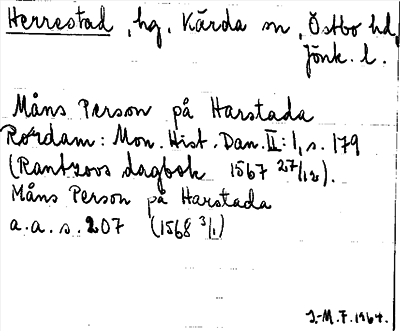 Herrestad, hg, Kärda sn, Östbo hd,
Jönk. l.
Måns Person på Harstada
Rørdam: Mon. Hist. Dan. II:1, s. 179
(Rantzovs dagbok 1567 27/12).
Måns Person på Harstada
a.a. s. 207 (1568 3/1)
J.-M. F. 1964.